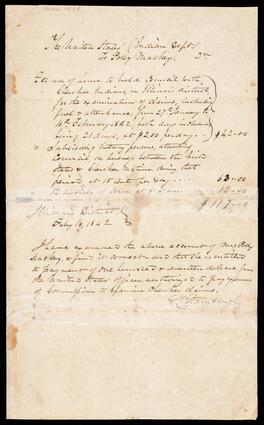 The United States (Indian Dept)
To Polly Mackey, Dr
For use of house to hold Council with
Cherokee Indians, in Illinois district,
for the examination of claims, including
fuel & attendance, from 27 January to
16th February 1842 both days inclusive
being 21 days, at $2.00 per day
$42.00
" Subsisting twenty persons, attending
Council, on business between the United
States & Cherokee Nation during that
period
63.00
12.00
$117.00
Illinois District
Feby 16, 1842
I have examined the above account of Mrs Polly
Mackey, & find it correct and that she is entitled
to payment of one hundred & seventeen dollars, from
the United States officer authorized to pay expenses
of Commissioner to examine Cherokee claims.